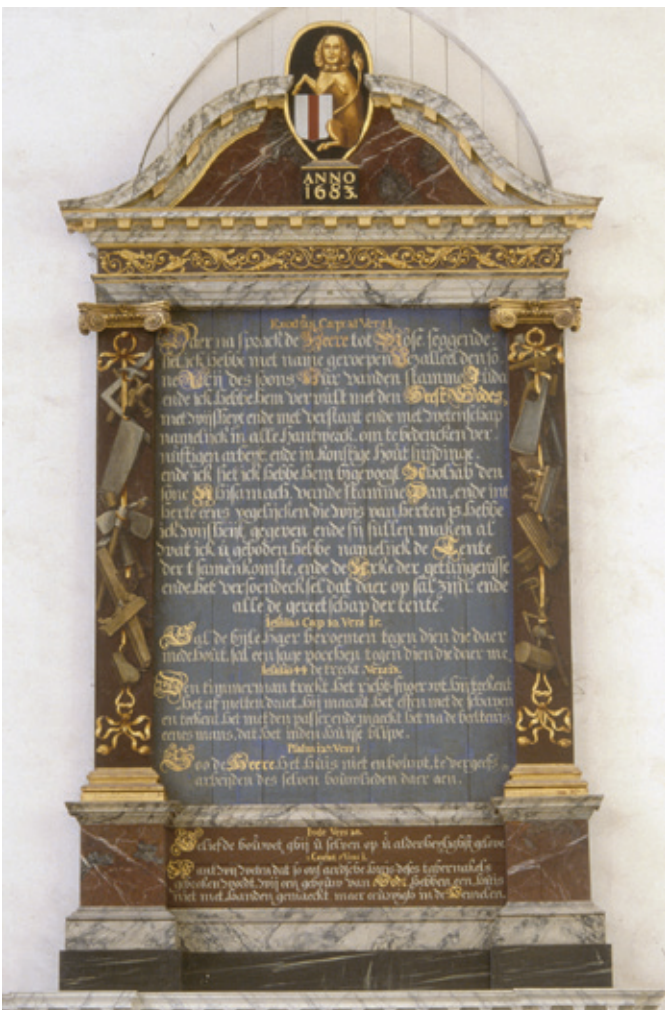 ANNO
1683.
Daer na sprack de Heere tot Mose, seggende:
siet, ick hebbe met name geroepen Bezalleel den so
ne Uri des soons Hur vanden stamme Juda
ende ick hebbe hem vervult met den Geest Godes
met wijsheyt ende met verstant ende met wetenschap
namelijck in alle hantwerck. om te bedencken ver-
nuftigen arbeyt ende in konstige hout snijdinge.
ende ick siet ick hebbe hem bigevoegt Aholiab den
sone Ahisamach vande stamme Dan. ende int
herte eens yegelijcken die wijs van herten is hebbe
ick wijsheyt gegeven ende sy sullen maken al
wat ick u geboden hebbe namelijck de Tente
der t samenkomste, ende de Arke der getuygenisse
ende het versoendecksel dat daer op sal zijn ende
alle de gereetschap der tente.
Cap 10. Vers 15.
Sal de bijle haer beroemen tegen dien die daer
mede hout, sal een sage pocchen tegen dien die daer me
de treckt
Den timmerman treckt het richt-snoer wt, hy teekent
het af met den draet, hy maeckt het effen met de schaven
en teekent het met den passer ende maeckt het na de beeltenis
eenes mans, dat het inden huyse blijve.
Psalm 127 Vers 1
Soo de Heere het huis niet en bouwt, te vergeefs
arbeyden des selven bouwlieden daer aen.
Jude Vers 20.
Geliefde bouwet ghy u selven op u alderheyligst geloove
Want wy weten dat so ons aerdsche huys deses tabernakels
gebroken wordt, wy een gebouw van Godt hebben een huis
niet met handen gemaeckt maer eeuwigh in de Hemelen.